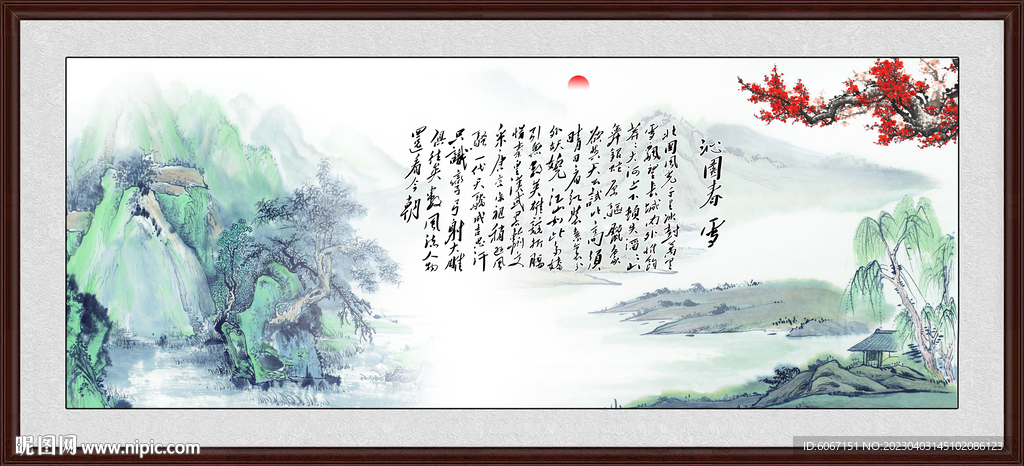 沁園春 雪
北国风光千里冰封万里
雪飘望长城内外惟余
莽莽大河上下顿失滔滔山
舞银蛇原驰腊象
欲与天公试比高须
晴日看红装素裹分
外妖娆江山如此多娇
引无数英雄竞折腰
惜秦皇汉武略输文
采唐宗宋祖稍逊风
骚一代天骄成吉思汗
只识弯弓射大雕
俱往矣数风流人物
还看今朝
昵图网 www.nipic.com
ID:6067151 NO:20230403145102086123